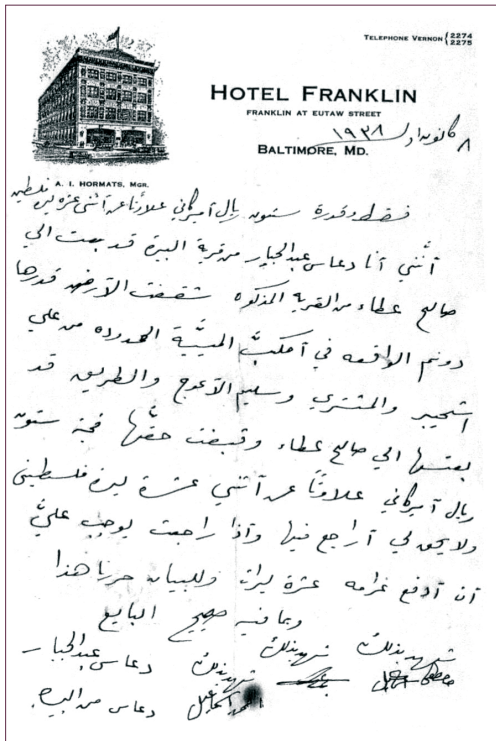 TELEPHONE VERNON {2274
2275
HOTEL FRANKLIN
FRANKLIN AT EUTAW STREET
٨ كانون اول ١٩٣٨
BALTIMORE, MD.
A. I. HORMATS, MGR.
فقط وقدرة ستون ريال آميركاني علاوتًا عن آثنى عشرة ليرة فلسطين
آنني آنا دعاس عبد الجبار من قرية البيرة قد بعت الي
صالح عطاء من القرية المذكوه شقفت الآرض قدرها
دونم الواقعه في آمكبّ الميتّية المحدوده من علي
اشحيبر والمشتري وسليم الآعوج والطريق قد
بعتها الي صالح عطاء وقبضت حقّها قمة ستون
ريال آميركاني علاوتًا عن آثنني عشرة ليرة فلسطيني
ولا يحق لي آراجع فيها وآذا راجعت يوجب عليّ
آن آدفع غرامه عشرة ليرات وللبيان حررنا هذا
وبما فيه صحيح البايع
شهد بذلك شهد بذلك شهد بذلك دعاس عبد الجبار
دعاس من البيره